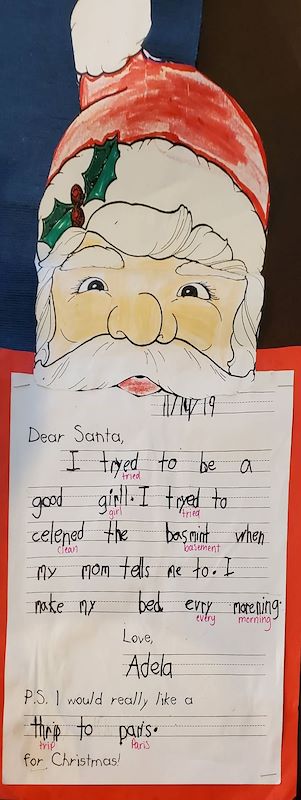 11/14/19
Dear Santa,
I tryed to be a
tried
good girll. I tryed to
girl tried
celened the basmint when
clean basement
my mom tells me to. I
make my bed evry marening.
every morning
Love,
Adela
P.S. I would really like a
thrip to paris.
trip Paris
for Christmas!